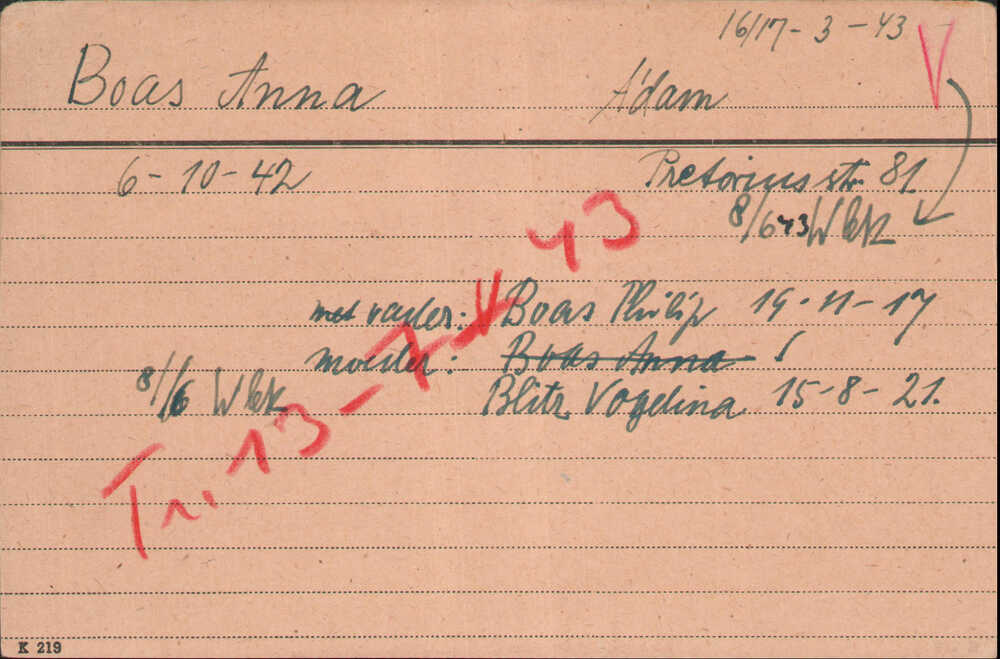 16/17 - 3 - 43
Boas Anna A'dam V
6 - 10 - 42 Pretoriusstr. 81
8/6 43 Wbk
met vader: Boas Philip 19 - 11 - 17
moeder: Boas Anna
8/6 Wbk Blitz Vogelina 15 - 8 - 21.
Tr. 13 - 7 - 43
K 219